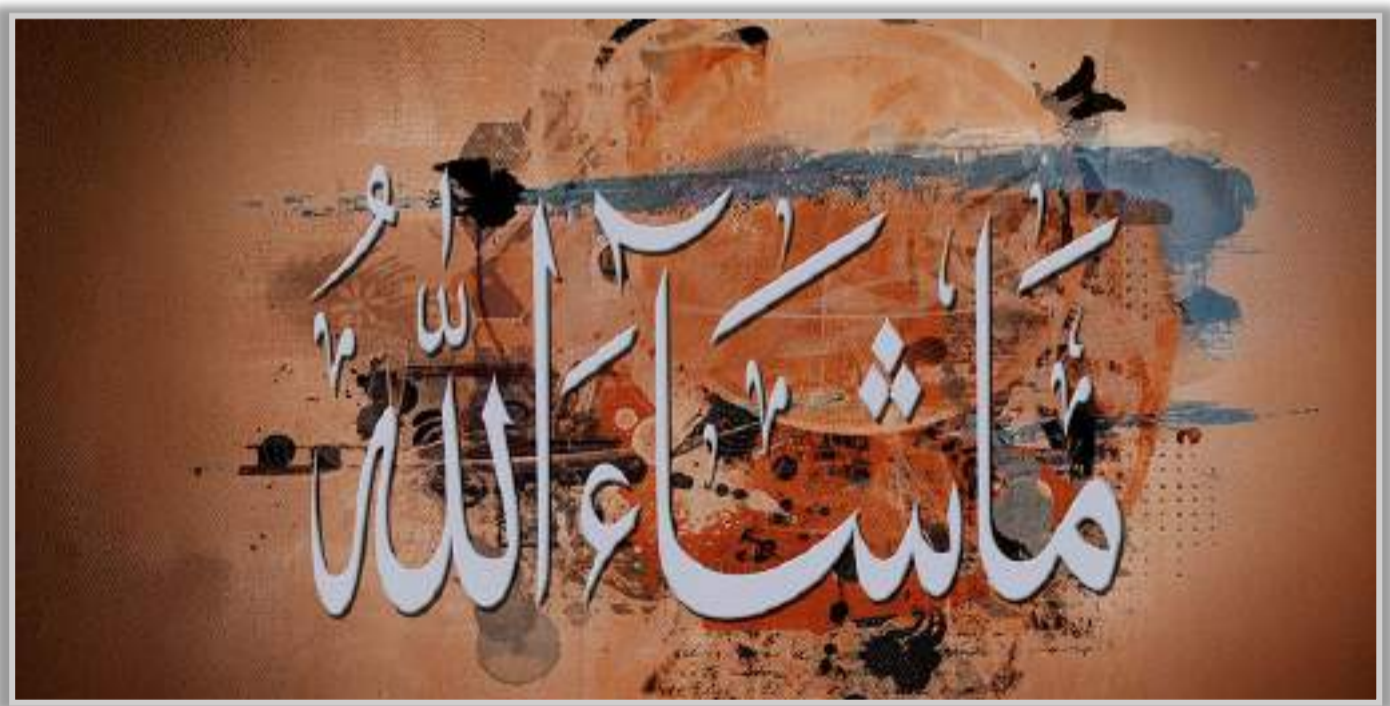 مَاشَآءَ اللّٰهُ